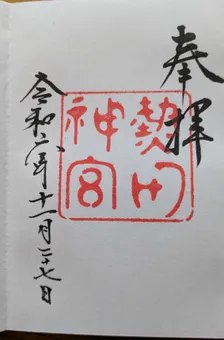 奉拝
熱田
神宮
令和六年十一月二十七日